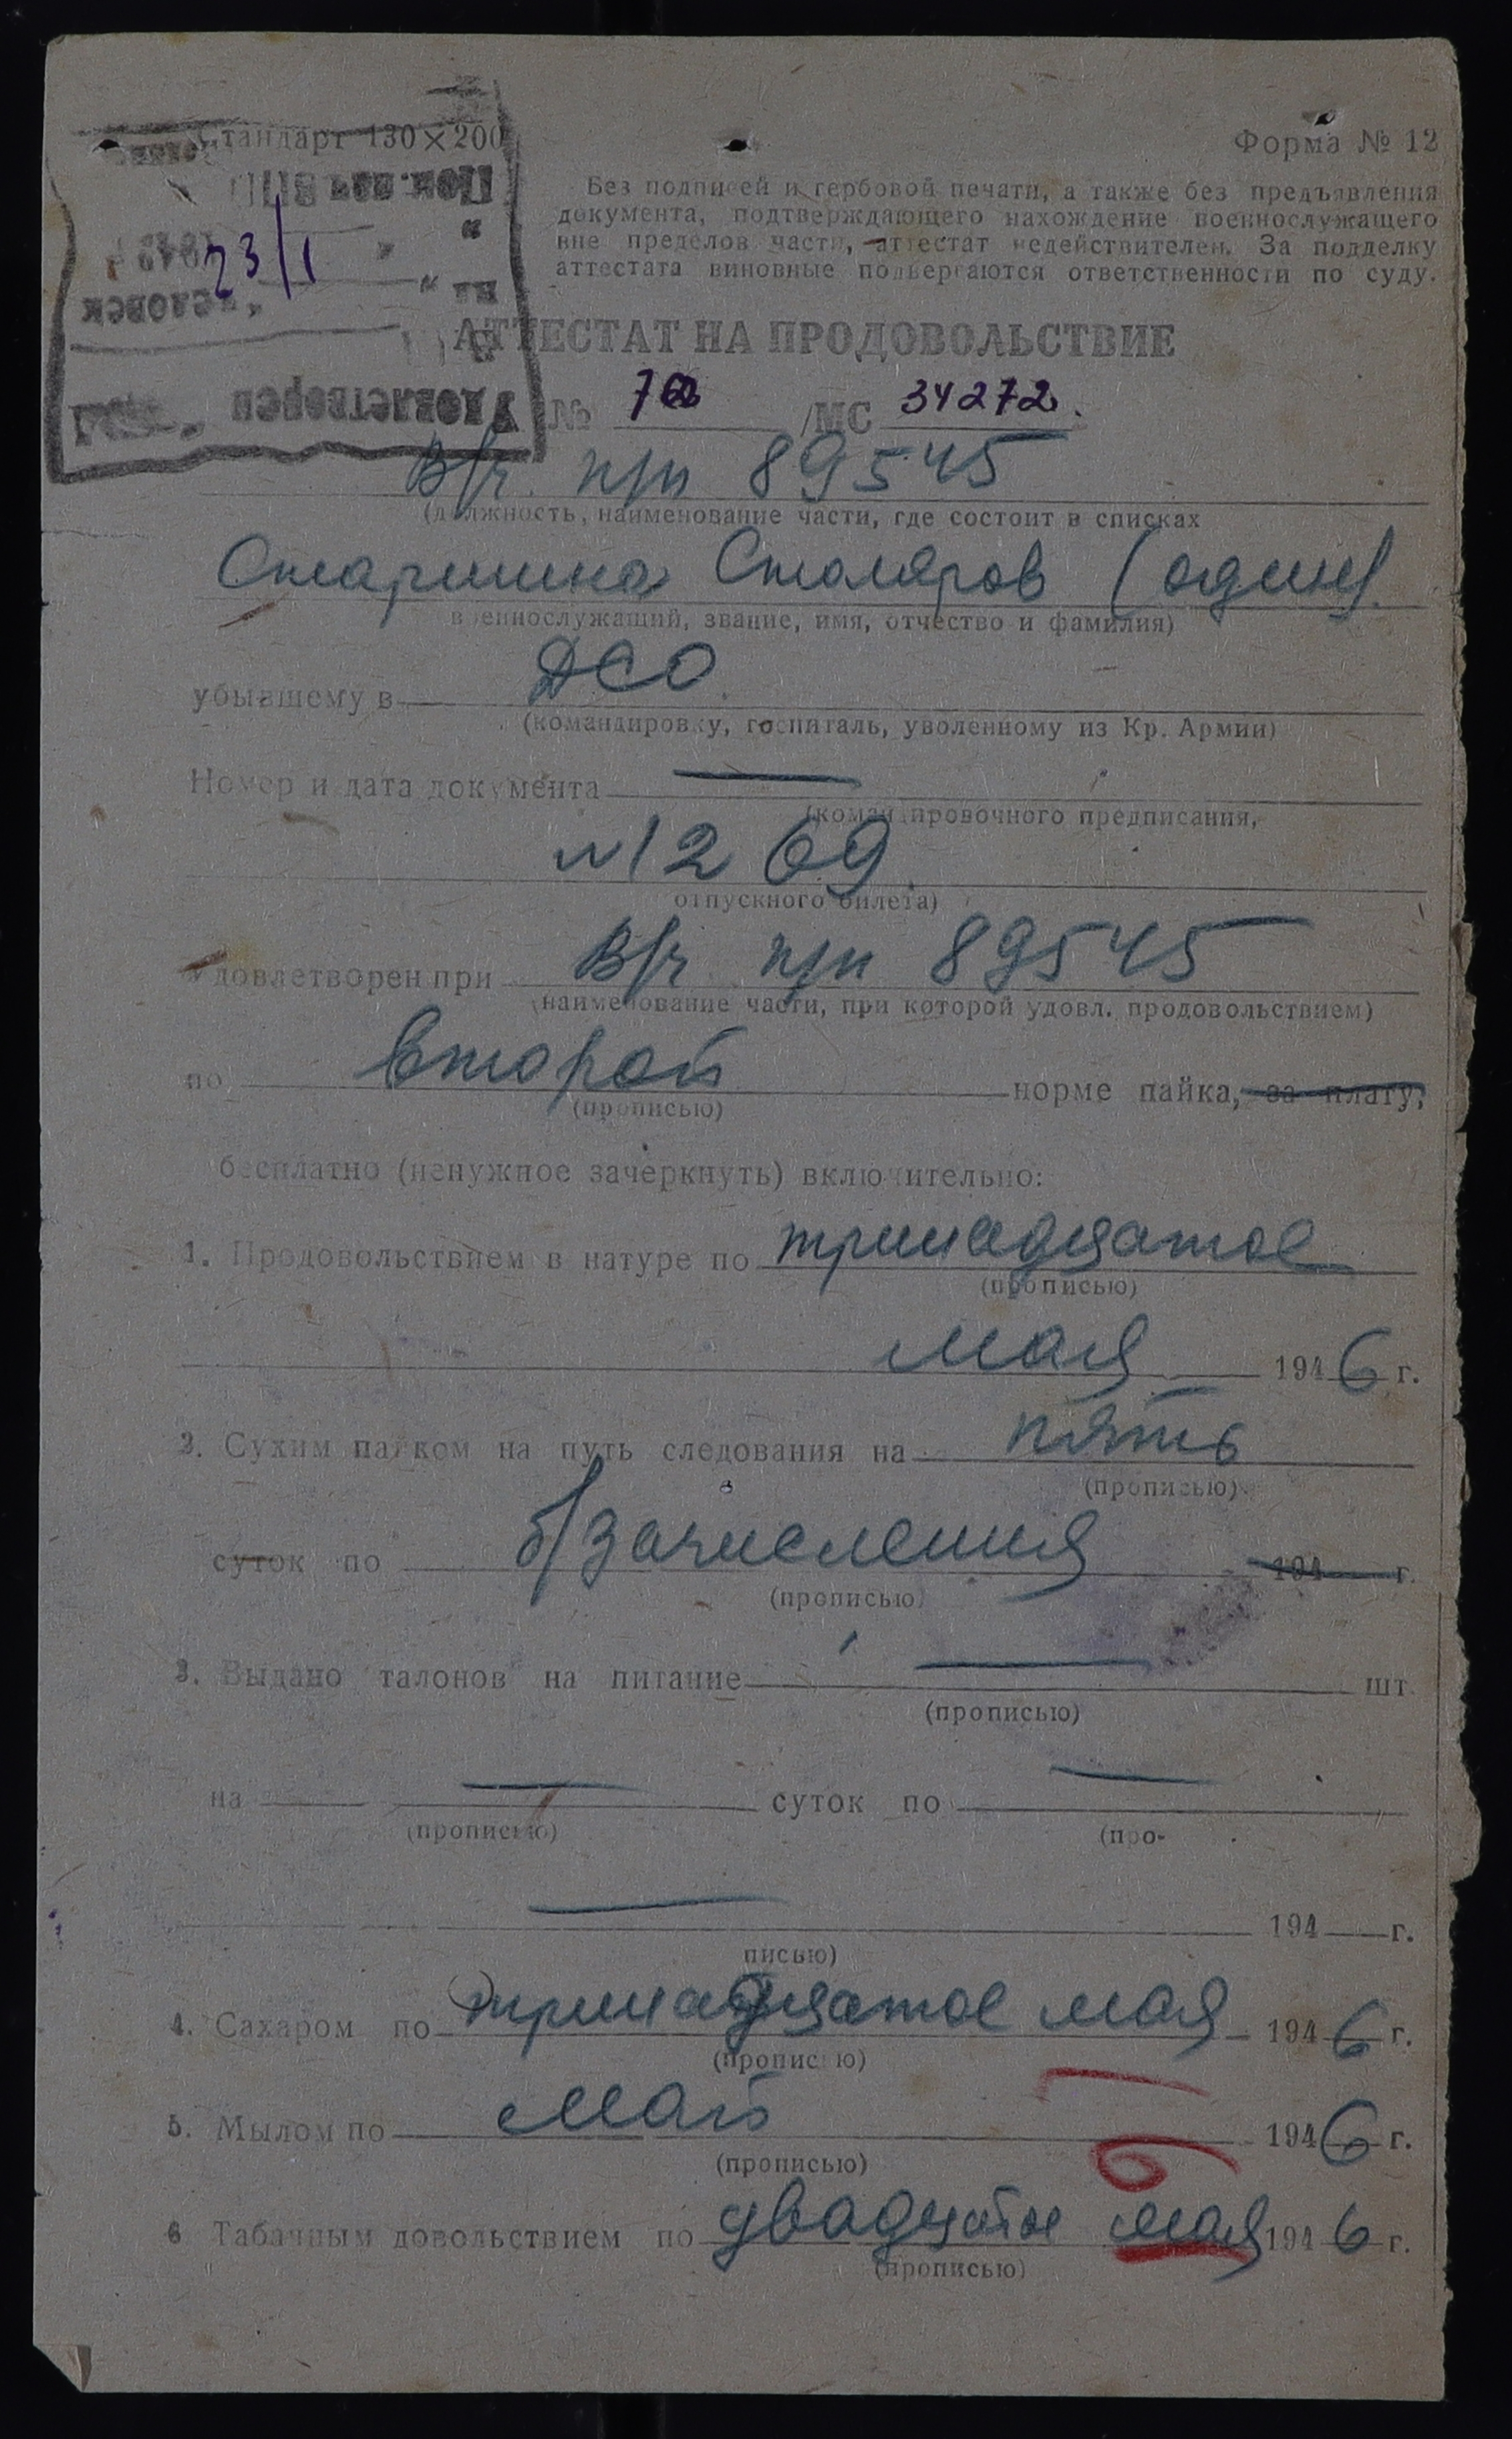 Стандарт 130×200
Форма № 12
Без подписей и гербовой печати, а также без предъявления
документа, подтверждающего нахождение военнослужащего
вне пределов части, аттестат недействителен. За подделку
аттестата виновные подвергаются ответственности по суду.
Удовлетворен
на
человек
23/I
АТТЕСТАТ НА ПРОДОВОЛЬСТВИЕ
№ /МС 34272.
В/ч п/п 89545
(должность, наименование части, где состоит в списках
Старшина Столяров (один)
военнослужащий, звание, имя, отчество и фамилия)
убывшему в ДСО
(командировку, госпиталь, уволенному из Кр. Армии)
Номер и дата документа —
(командировочного предписания,
№1269
отпускного билета)
Удовлетворен при В/ч п/п 89545
(наименование части, при которой удовл. продовольствием)
по второй норме пайка, за плату,
(прописью)
бесплатно (ненужное зачеркнуть) включительно:
1. Продовольствием в натуре по тринадцатое
(прописью)
мая 1946 г.
2. Сухим пайком на путь следования на пять
(прописью)
суток по б/зачисления 194 г.
(прописью)
3. Выдано талонов на питание — шт.
(прописью)
на — суток по —
(прописью) (про-
— 194 г.
писью)
4. Сахаром по тринадцатое мая 1946 г.
(прописью)
5. Мылом по май 1946 г.
(прописью)
6 Табачным довольствием по двадцатое мая 1946 г.
(прописью)